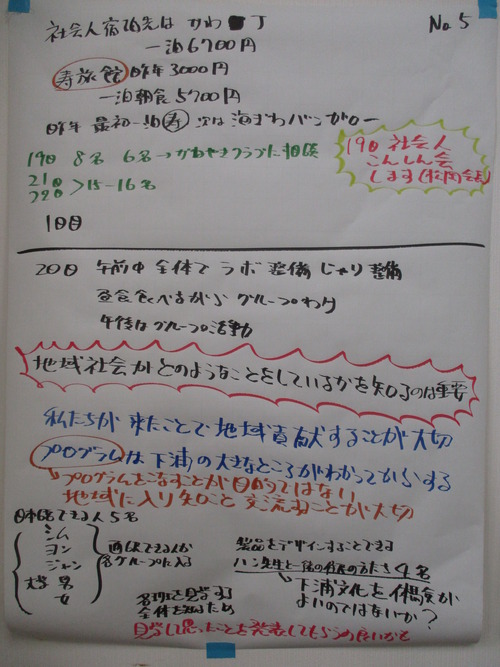 No 5
社会人宿泊先は かわ
一泊6700円
寿旅館 昨年3000円
一泊朝食5700円
昨年 最初一泊寿 次は海ぎわバンガロー
19日 8名 6名→かわやきクラブに相談
21日
22日 >15-16名
19日 社会人
こんしん会
します
1日目
20日 午前中 全体で ラボ整備 じゃり整備
昼食食べながら グループわけ
午後は グループ活動
地域社会がどのようなことをしているかを知るのは重要
私たちが来たことで地域貢献することが大切
プログラムは下浦の大きなところがわかってからする
プログラムをこなすことが目的ではない
地域に入り知ること 交流することが大切
日本語できる人5名
シム
ヨン
ジャン
大学 男
女
通訳できる人が
各グループに入る
製品をデザインすることできる
ハン先生と一般の住民の方たち4名
下浦文化を
よいのではないか?
見学する
全体を知るため
見学して思ったことを発表してもらうの良いかも